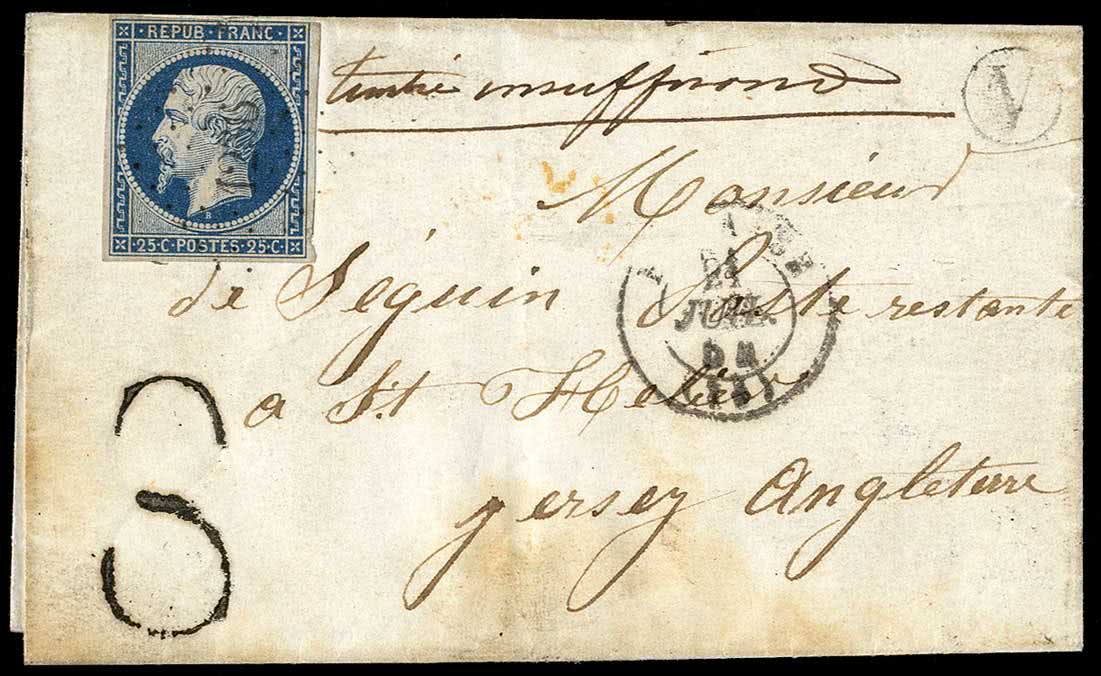 REPUB. FRANC.
B
25·C·POSTES·25·C.
timbre insuffisand
Monsieur
de Séguin Poste restante
a St Helier
jersey Angleterre
21
JUIL.
8